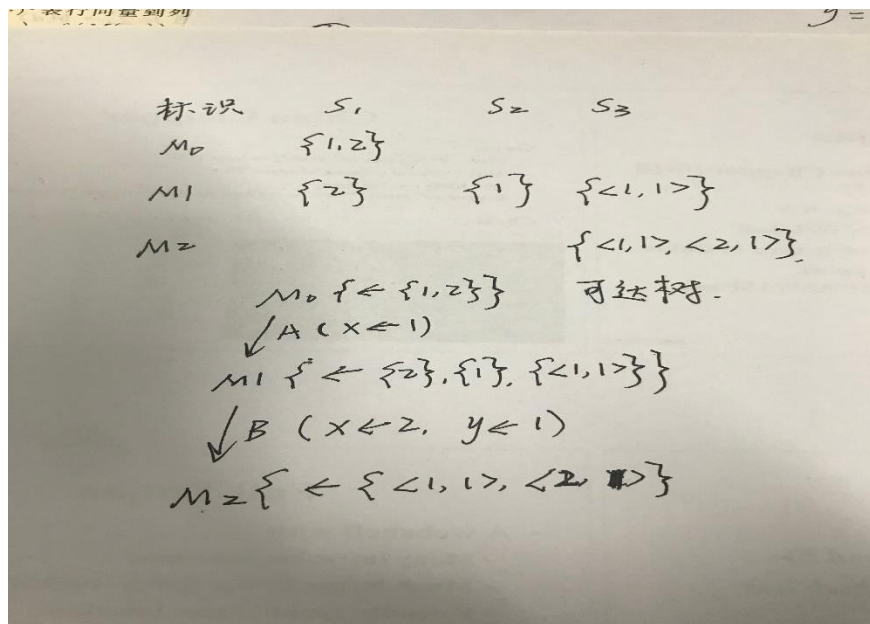 y =
标识 S1 S2 S3
M0 {1,2}
M1 {2} {1} {<1,1>}
M2 {<1,1>, <2,1>}.
M0 {← {1,2}} 可达树.
A (x←1)
M1 {← {2}, {1}, {<1,1>}}
B (x←2, y←1)
M2 {← {<1,1>, <2, 1>}